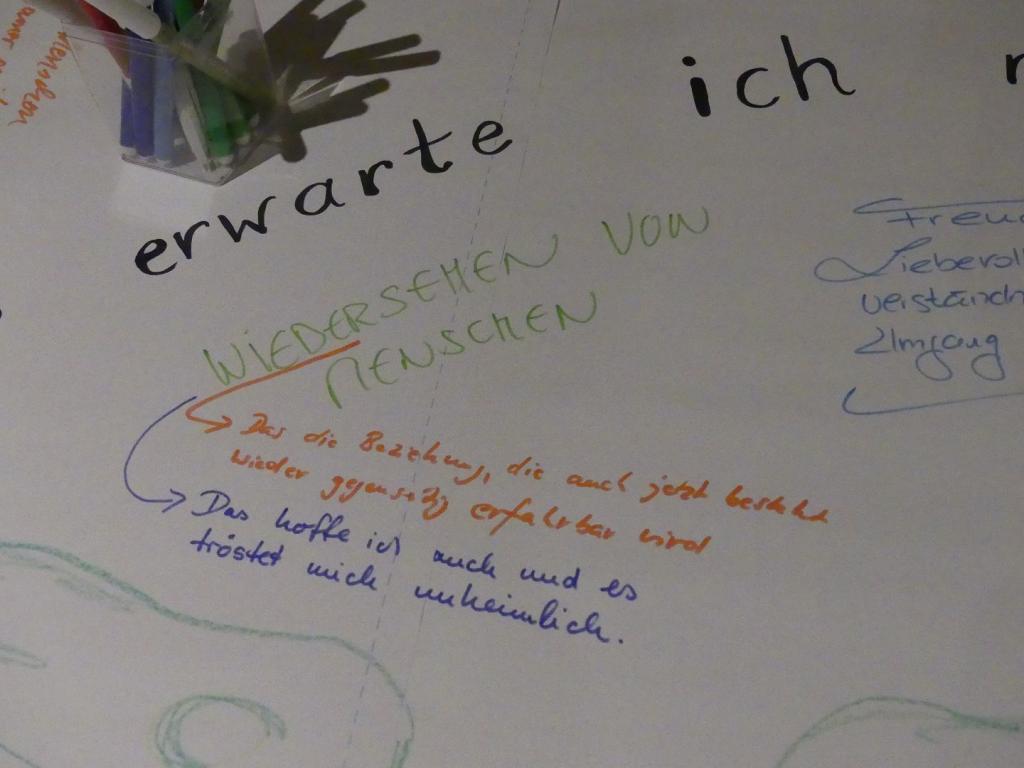 erwarte ich
WIEDERSEHEN VON
MENSCHEN
Das die Beziehung, die auch jetzt besteht
wieder gegenseitig erfahrbar wird
Das hoffe ich auch und es
tröstet mich unheimlich.
Freu
Liebevoll
verständn
Umgang